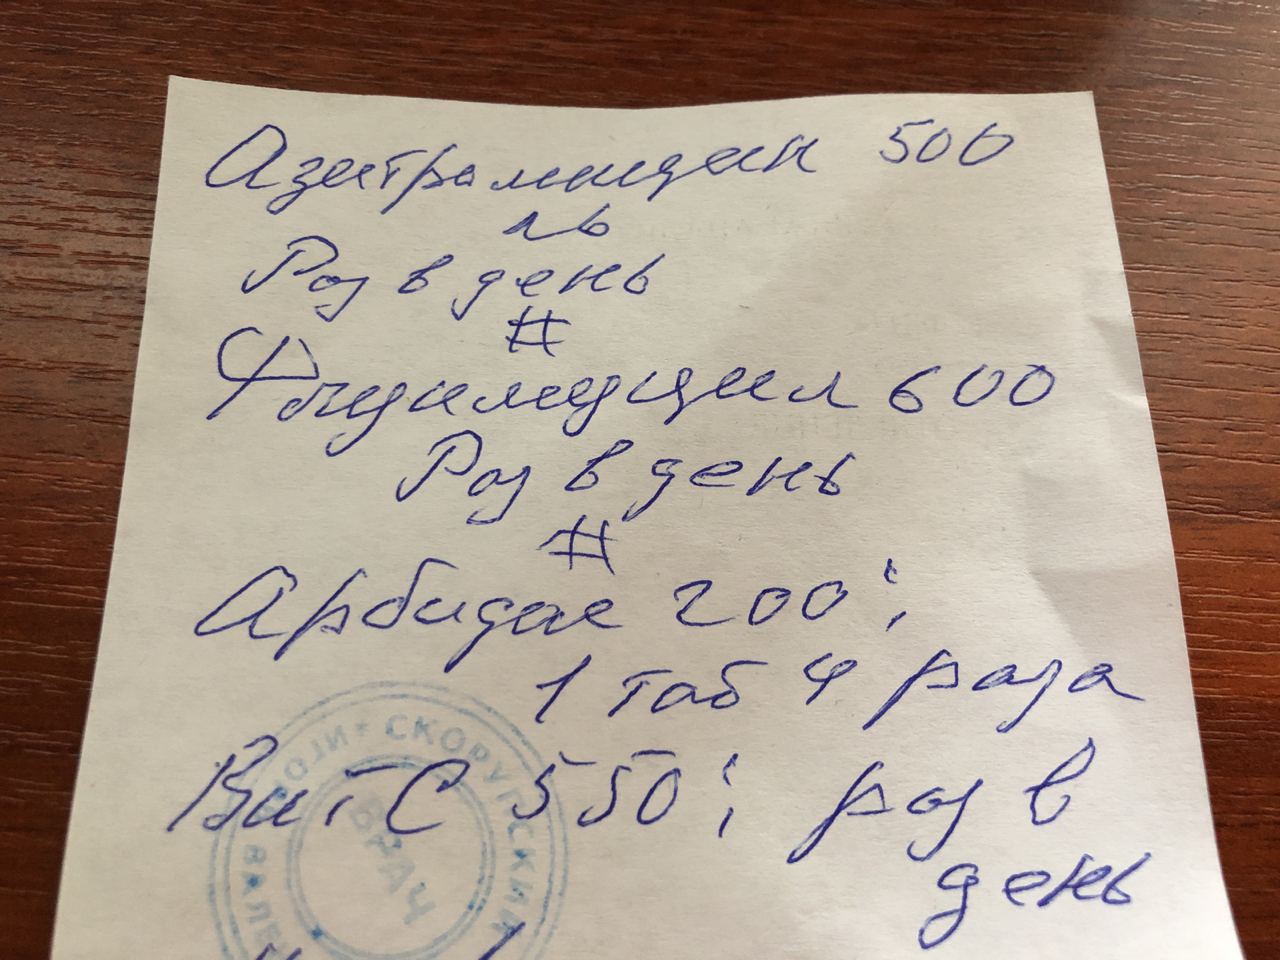 Азитрамицин 500
Раз в день
#
Флуимуцил 600
Раз в день
#
Арбидол 200;
1 таб 4 раза
Вит С 550; раз в
день
СКОРУПСКИЙ
ВАЛЕ
ВРАЧ